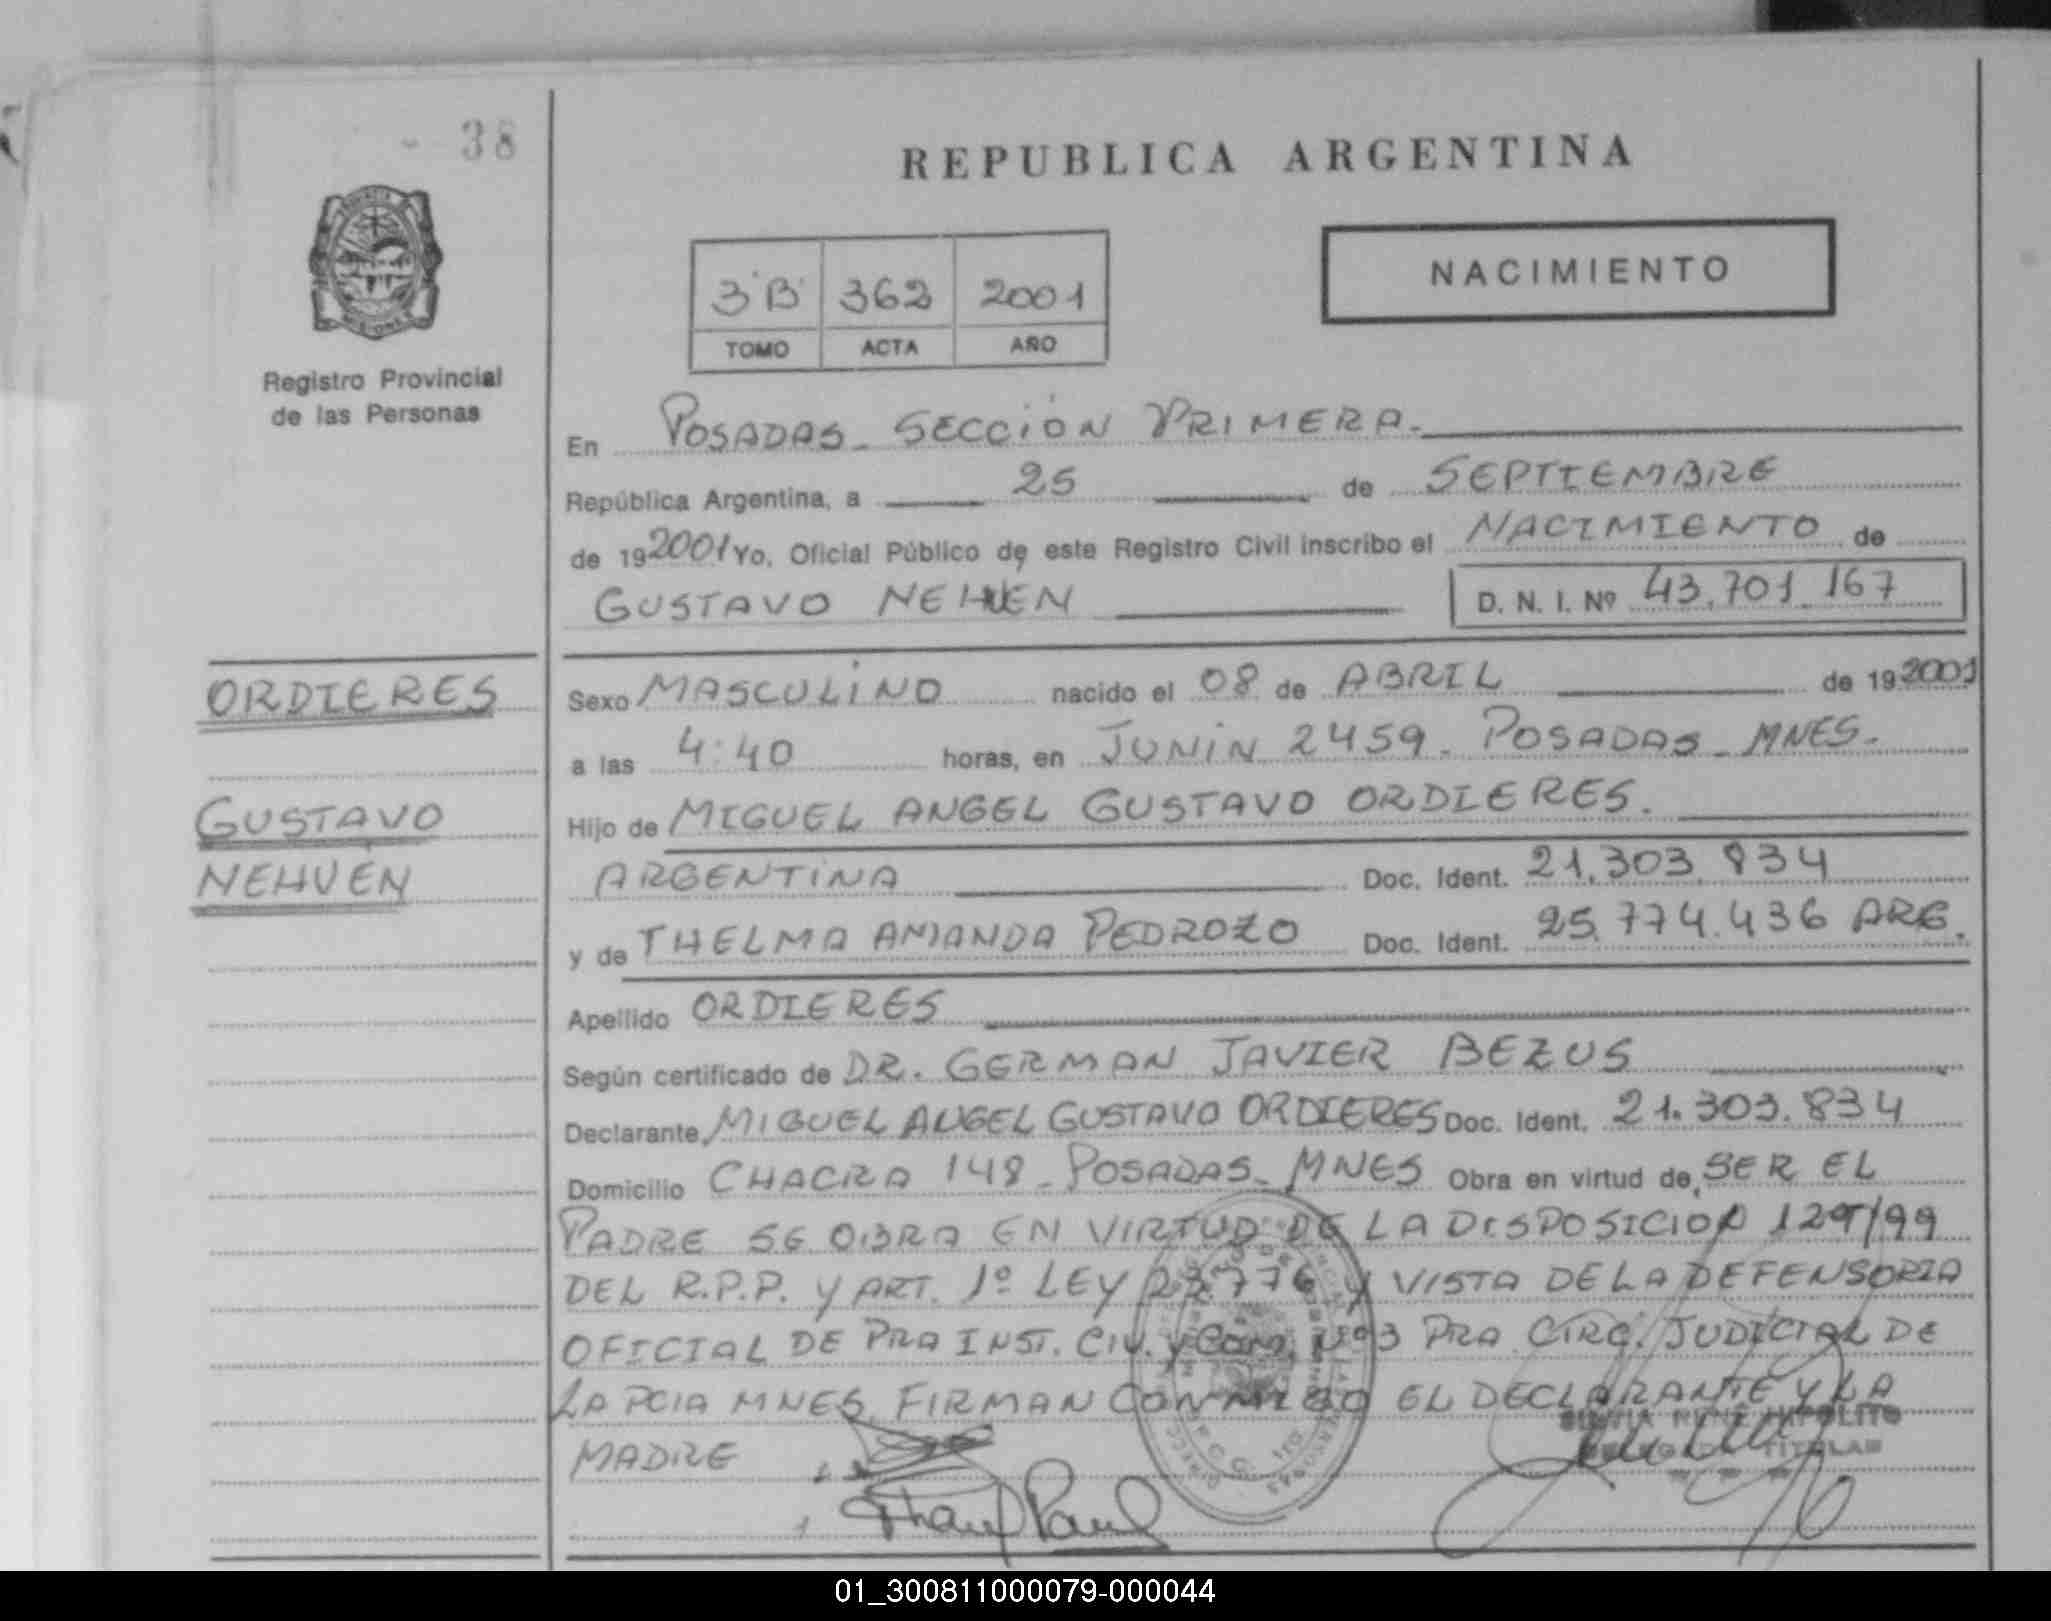 38
REPUBLICA ARGENTINA
NACIMIENTO
3 'B' 362 2001
TOMO ACTA AÑO
PROVINCIA
MISIONES
Registro Provincial
de las Personas
En POSADAS - SECCIÓN PRIMERA.
República Argentina, a 25 de SEPTIEMBRE
de 19 2001 Yo, Oficial Público de este Registro Civil inscribo el NACIMIENTO de
GUSTAVO NEHUEN D. N. I. Nº 43.701.167
ORDIERES
Sexo MASCULINO nacido el 08 de ABRIL de 19 2001
a las 4:40 horas, en JUNIN 2459. POSADAS - MNES.
GUSTAVO
Hijo de MIGUEL ANGEL GUSTAVO ORDIERES.
NEHUÉN
ARGENTINA Doc. Ident. 21.303.834
y de THELMA AMANDA PEDROZO Doc. Ident. 25.774.436 ARG.
Apellido ORDIERES
Según certificado de DR. GERMAN JAVIER BEZUS
Declarante MIGUEL ANGEL GUSTAVO ORDIERES Doc. Ident. 21.303.834
Domicilio CHACRA 148 - POSADAS - MNES Obra en virtud de, SER EL
PADRE SE OBRA EN VIRTUD DE LA DISPOSICION /99
DEL R.P.P. Y ART. 1º LEY 23.776 Y VISTA DE LA DEFENSORIA
OFICIAL DE PRA INST. CIV. Y COM. Nº 3 PRA CIRC. JUDICIAL DE
LA PCIA MNES. FIRMAN CONMIGO EL DECLARANTE Y LA
HIPOLITO
MADRE
TITULAR
01_300811000079-000044